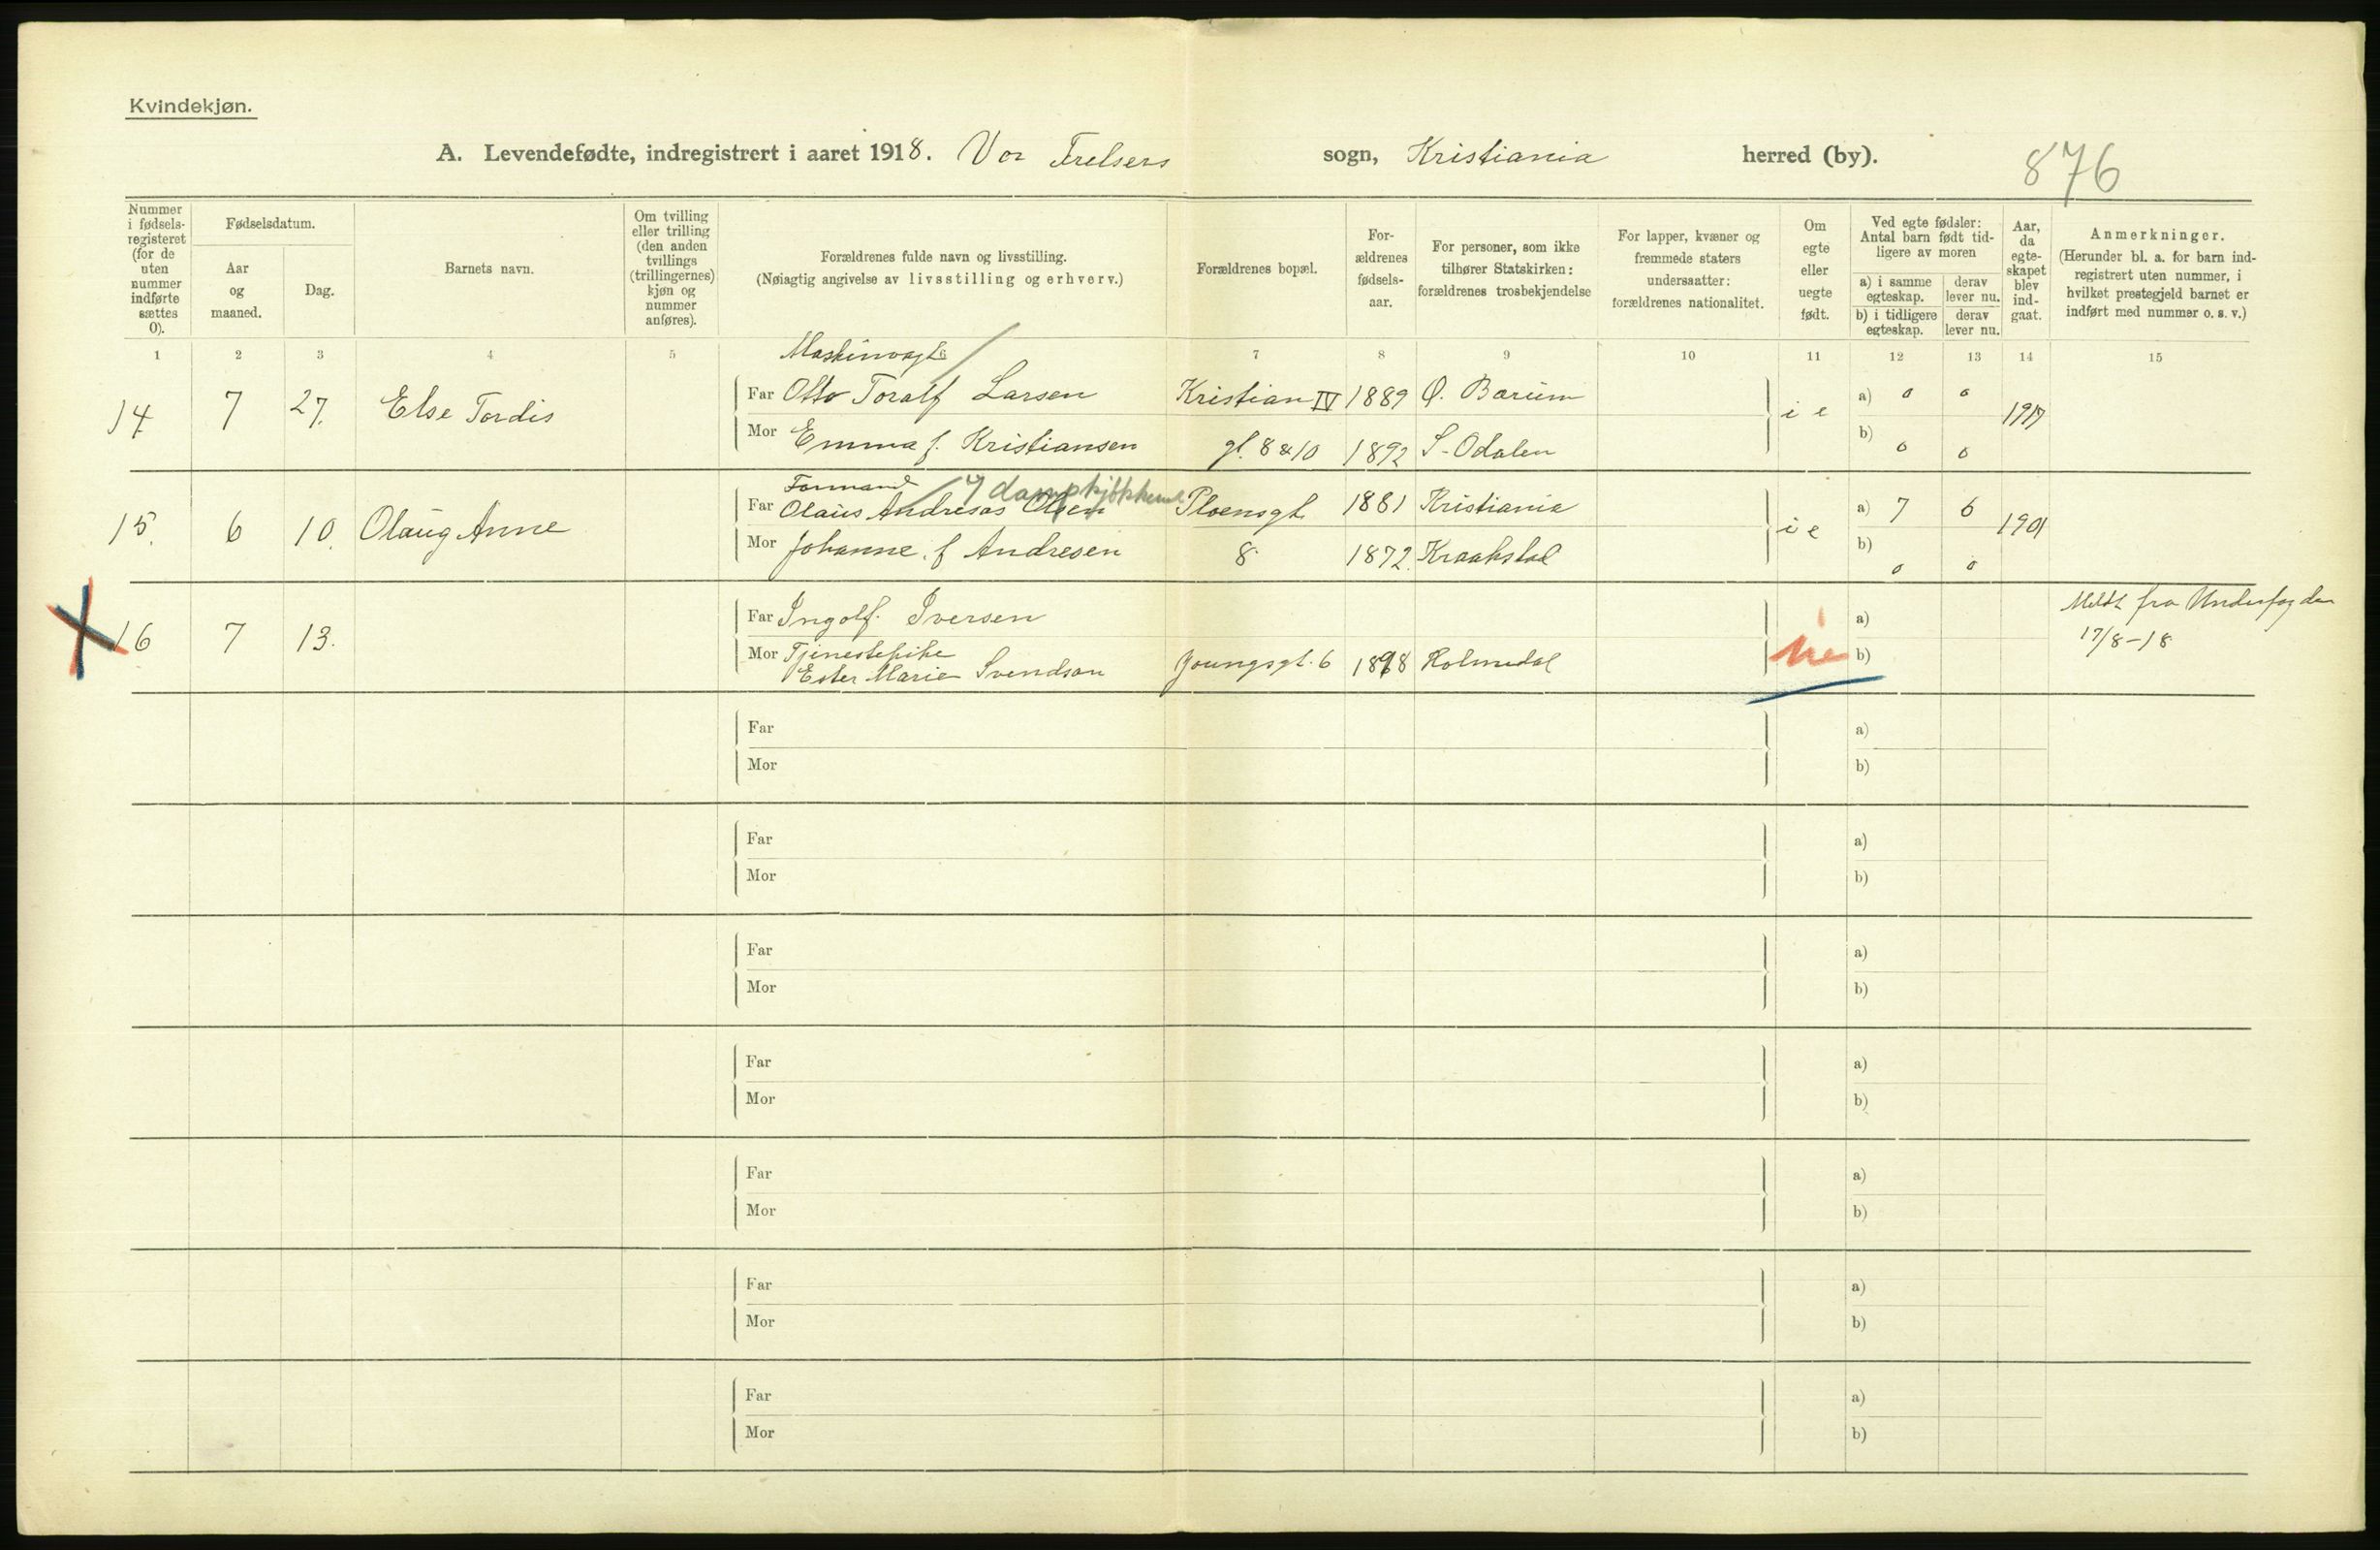 Kvindekjøn.
A. Levendefødte, indregistrert i aaret 1918. Vor Frelsers sogn, Kristiania herred (by).
876
Nummer i fødsels-registeret (for de uten nummer indførte sættes 0).
Fødselsdatum.
Aar og maaned.
Dag.
Barnets navn.
Om tvilling eller trilling (den anden tvillings (trillingernes) kjøn og nummer anføres).
Forældrenes fulde navn og livsstilling.
(Nøiagtig angivelse av livsstilling og erhverv.)
Forældrenes bopæl.
For-ældrenes fødsels-aar.
For personer, som ikke tilhører Statskirken: forældrenes trosbekjendelse
For lapper, kvæner og fremmede staters undersaatter: forældrenes nationalitet.
Om egte eller uegte født.
Ved egte fødsler: Antal barn født tid-ligere av moren
a) i samme egteskap.
derav lever nu.
b) i tidligere egteskap.
derav lever nu.
Aar, da egte-skapet blev ind-gaat.
Anmerkninger.
(Herunder bl. a. for barn ind-registrert uten nummer, i hvilket prestegjeld barnet er indført med nummer o. s. v.)
1 2 3 4 5 6 7 8 9 10 11 12 13 14 15
Maskinvagt
14 7 27. Else Tordis Far Otto Toralf Larsen Kristian IV 1889 Ø. Bærum i e a) 0 0 1917
Mor Emma f. Kristiansen gt. 8 & 10 1892 S-Odalen b) 0 0
Formand v dampkjøkkenet
15. 6 10. Olaug Anne Far Olaus Andreas Olsen Ploensgt 1881 Kristiania i e a) 7 6 1901
Mor Johanne f Andresen 8. 1872. Kraakstad b) 0 0
X 16 7 13. Far Ingolf Iversen a) Meldt fra Underfogden
17/8-18
Mor Tjenestepike
Ester Marie Svendsen Youngsgt. 6 1898 Holmedal ue b)
Far a)
Mor b)
Far a)
Mor b)
Far a)
Mor b)
Far a)
Mor b)
Far a)
Mor b)
Far a)
Mor b)
Far a)
Mor b)